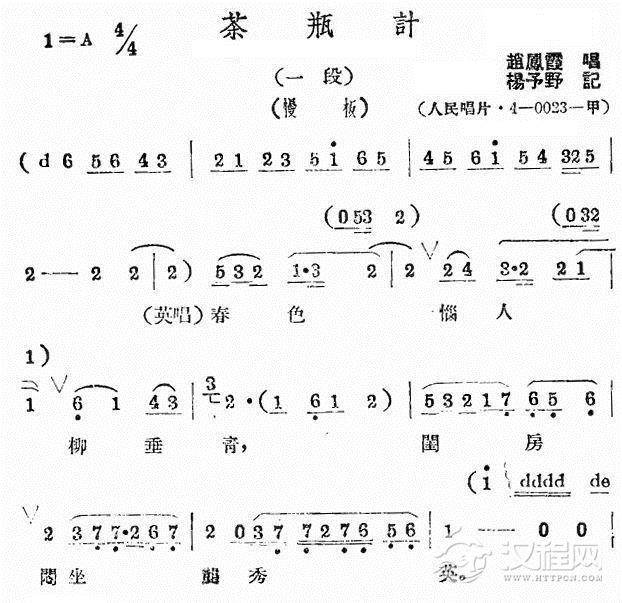 茶瓶計
1=A 4/4
(一段)
趙鳳霞 唱
(慢板)
楊予野 記
(人民唱片·4-0023-甲)
(d 6 56 43 | 21 23 5i 65 | 45 6i 54 325
(053 2) (032
2-- 2 2 | 2) 532 1·3 2 | 2 24 3·2 21
(英唱)春 色 惱 人
1)
1 6 1 43 | 2·(1 61 2) | 53217 65 6
柳 垂 青, 閨 房
(i dddd de
2 377·267 | 2 037 7276 56 | 1 -- 0 0
悶坐 秀 英。
汉程网
WWW.HTTPCN.COM